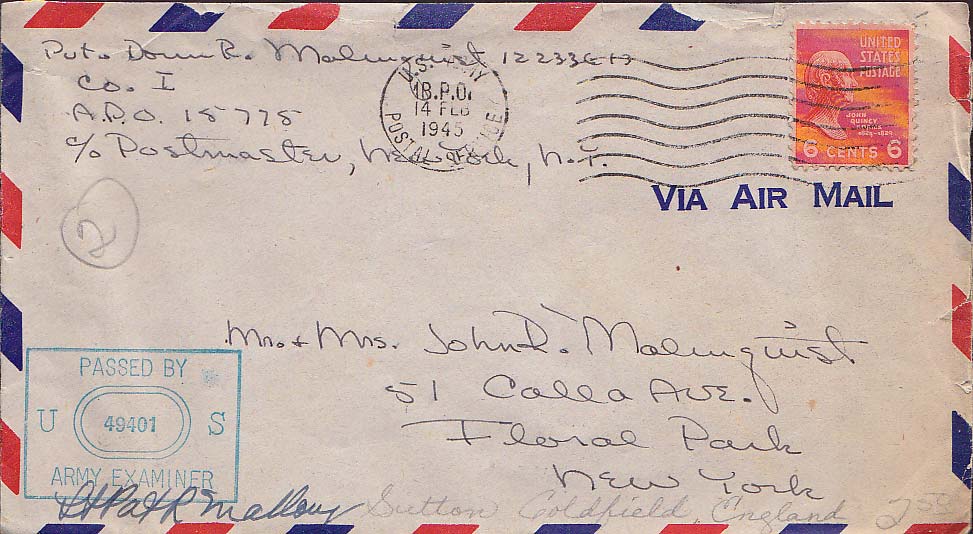 Pvt. Donn R. Malmquist
Co. I
A.P.O. 15778
c/o Postmaster, New York, N.Y.
U.S. ARMY
A.P.O.
14 FEB
1945
POSTAL SERVICE
UNITED
STATES
POSTAGE
JOHN
QUINCY
ADAMS
1825-1829
6 CENTS 6
VIA AIR MAIL
2
Mr. & Mrs. John R. Malmquist
51 Calla Ave.
Floral Park
New York
PASSED BY
U 49401 S
ARMY EXAMINER
Lt Pat R Mallory
Sutton Coldfield, England